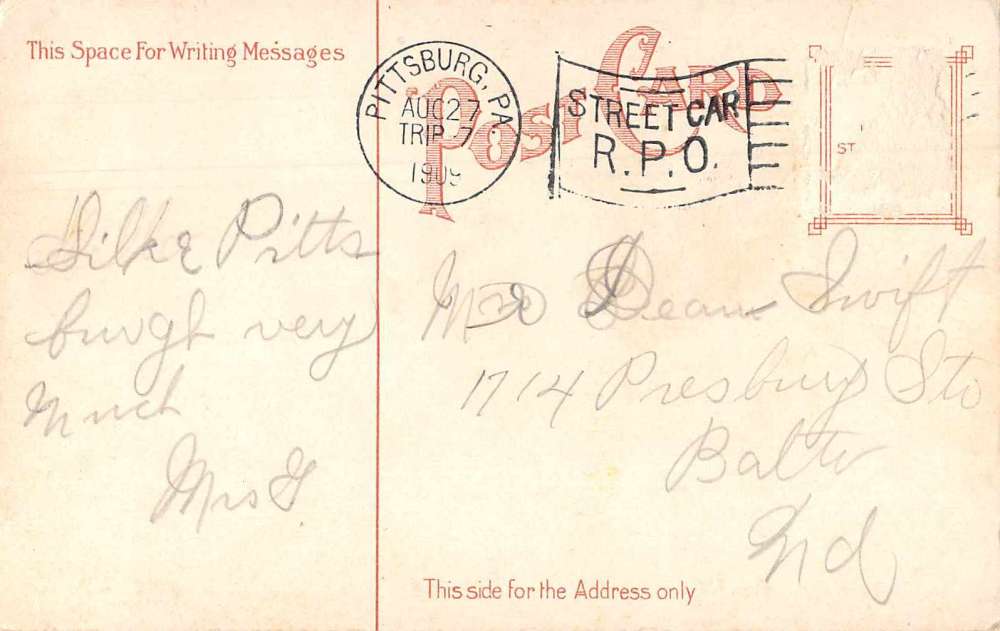 This Space For Writing Messages
PITTSBURG, PA.
AUG 27
TRIP 7
1909
POST CARD
STREET CAR
R.P.O.
ST
I like Pitts
burgh very
Much
Mrs
Dean Swift
1714 Presbury St
Balto
Md
This side for the Address only